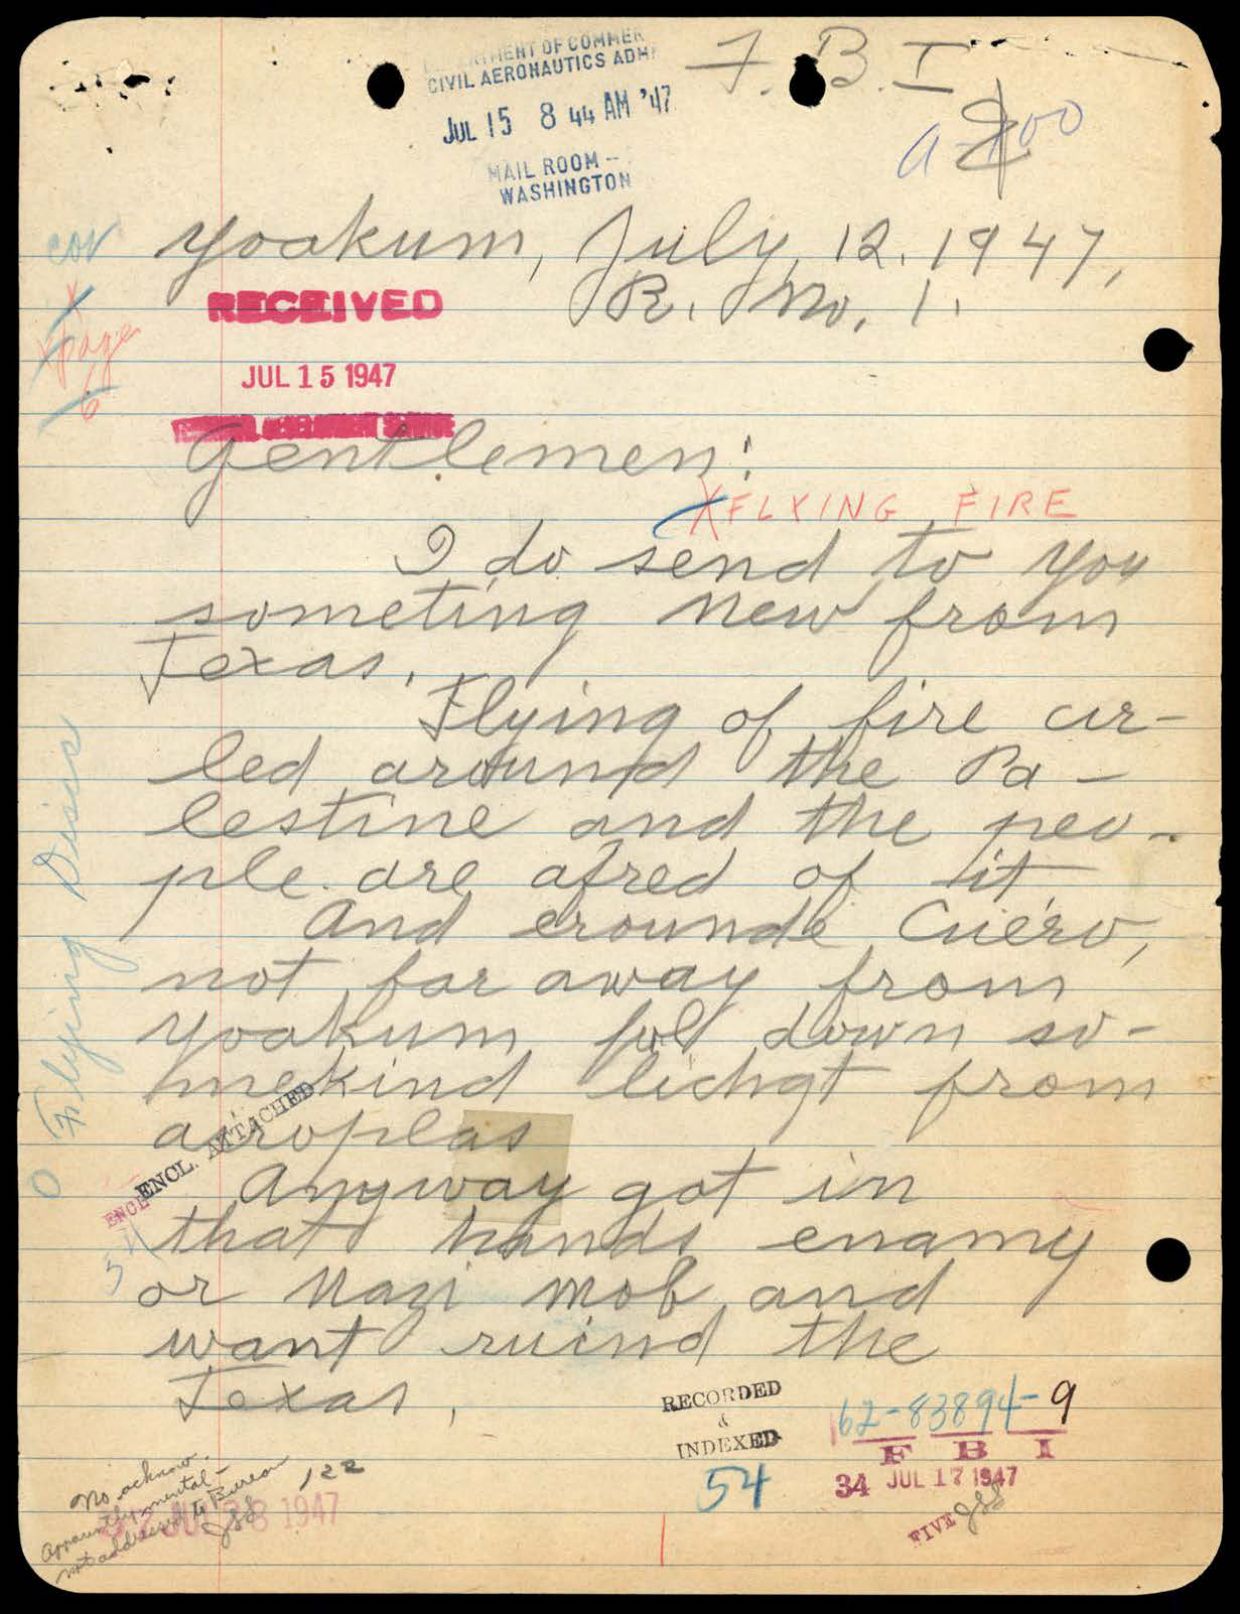 DEPARTMENT OF COMMER
CIVIL AERONAUTICS ADM
JUL 15 8 44 AM '47
MAIL ROOM —
WASHINGTON
F. B. I
cov
Yoakum, July, 12. 1947,
R. No. 1.
RECEIVED
JUL 15 1947
page
6
Gentlemen:
X FLYING FIRE
I do send to you
someting new from
Texas.
Flying of fire cir-
led around the Pa-
lestine and the peo-
ple are afred of it
And erounde Cuero,
not far away from
Yoakum fel down so-
mekind lichgt from
aeroplas
Anyway got in
that hands enamy
or Nazi mob, and
want ruind the
Texas,
O Flying Discs
ENCL. ATTACHED
RECORDED
&
INDEXED
54
62-83894-9
F B I
34 JUL 17 1947
FIVE
122
No acknow.
Apparently mental-
not addressed to Bureau
JUL 28 1947